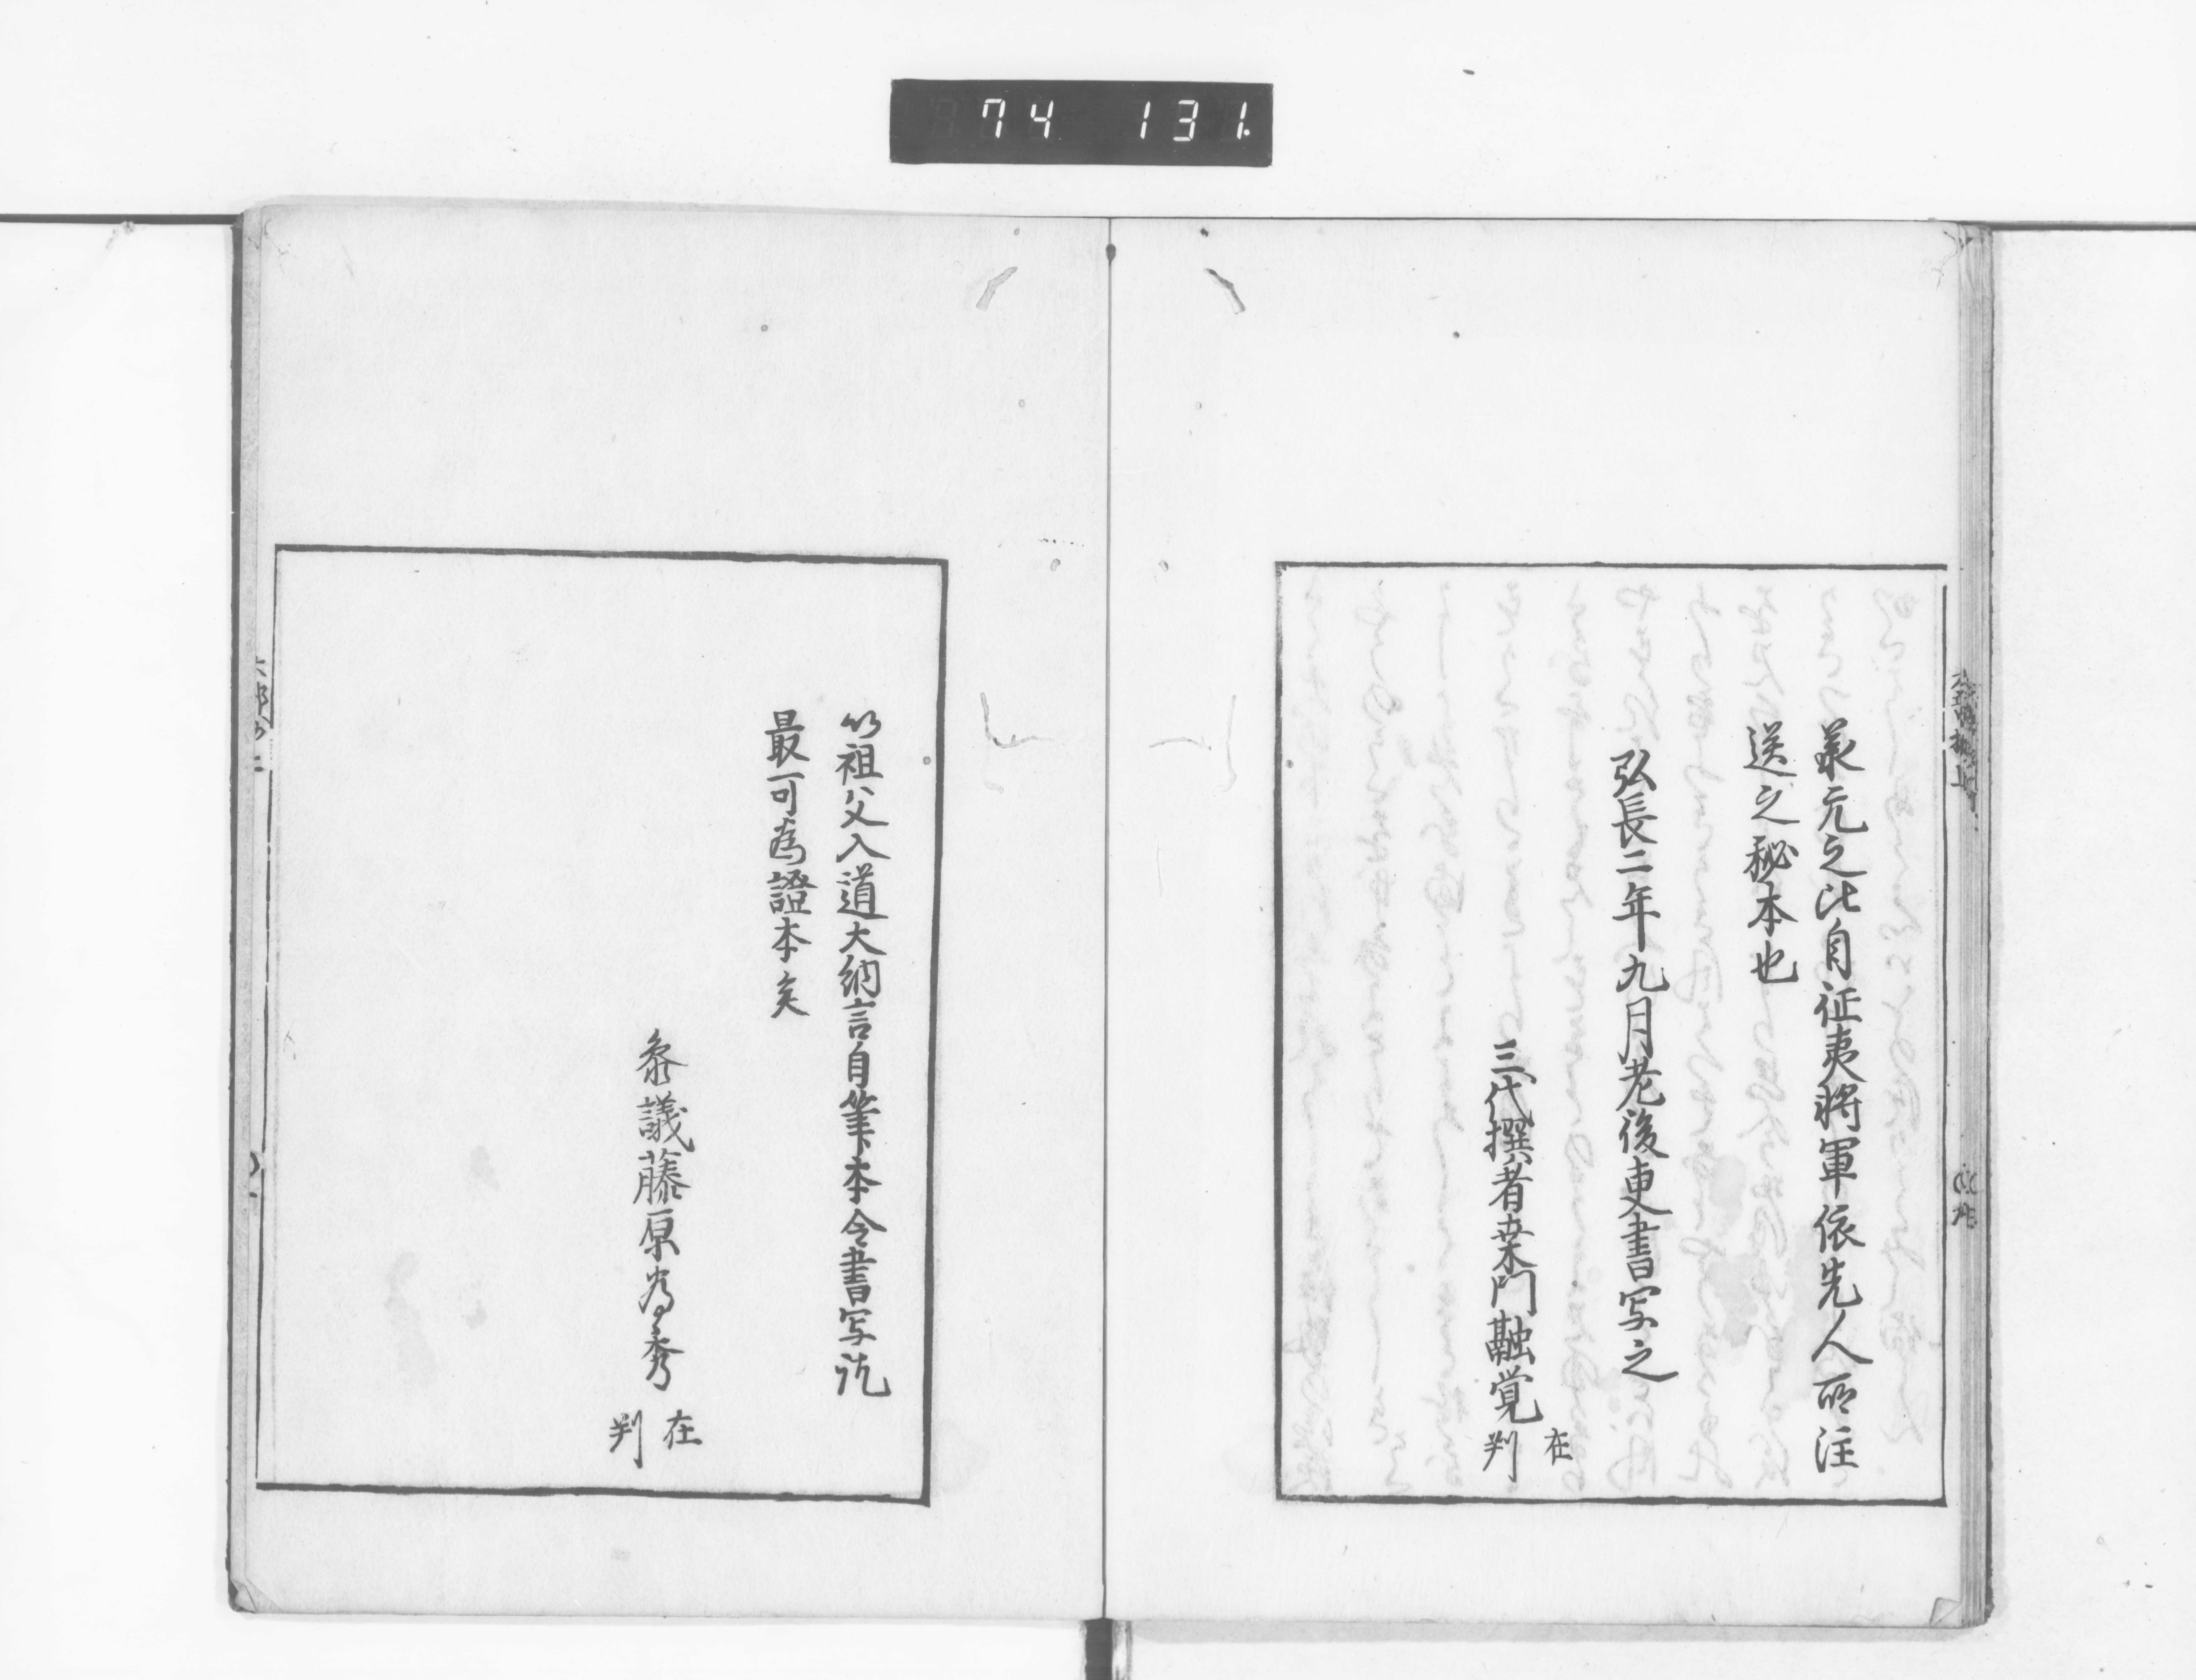 74 131
羕元之比自征夷将軍依先人所注
送之秘本也
弘長二年九月老後更書写之
三代撰者桒門融覚 在判
以祖父入道大納言自筆本令書写訖
最可為證本矣
叅議藤原為秀 在判